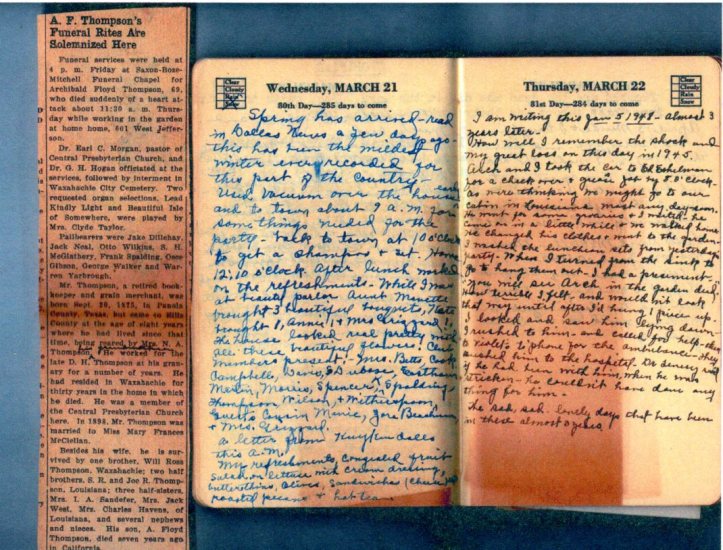 A. F. Thompson's
Funeral Rites Are
Solemnized Here
Funeral services were held at
4 p. m. Friday at Saxon-Bose-
Mitchell Funeral Chapel for
Archibald Floyd Thompson, 69,
who died suddenly of a heart at-
tack about 11:30 a. m. Thurs-
day while working in the garden
at home home, 601 West Jeffer-
son.
Dr. Earl C. Morgan, pastor of
Central Presbyterian Church, and
Dr. G. H. Hogan officiated at the
services, followed by interment in
Waxahachie City Cemetery. Two
requested organ selections, Lead
Kindly Light and Beautiful Isle
of Somewhere, were played by
Mrs. Clyde Taylor.
Pallbearers were Jake Dillehay,
Jack Neal, Otto Wilkins, S. H.
McGlathery, Frank Spalding, Osce
Gibson, George Walker and War-
ren Yarbrough.
Mr. Thompson, a retired book-
keeper and grain merchant, was
born Sept. 20, 1875, in Panola
County, Texas, but came to Ellis
County at the age of eight years
where he had lived since that
time, being reared by Mrs. N. A.
Thompson. He worked for the
late D. H. Thompson at his gran-
ary for a number of years. He
had resided in Waxahachie for
thirty years in the home in which
he died. He was a member of
the Central Presbyterian Church
here. In 1898, Mr. Thompson was
married to Miss Mary Frances
McClellan.
Besides his wife, he is sur-
vived by one brother, Will Ross
Thompson, Waxahachie; two half
brothers, S. R. and Joe R. Thomp-
son, Louisiana; three half-sisters,
Mrs. I. A. Sandefer, Mrs. Jack
West, Mrs. Charles Havens, of
Louisiana, and several nephews
and nieces. His son, A. Floyd
Thompson, died seven years ago
in California.
Clear
Cloudy
Rain
Wednesday, MARCH 21
80th Day—285 days to come
Spring has arrived - read
in Dallas News a few days ago
this has been the mildest
winter ever recorded for
this part of the country.
Used vacuum over the house early
and to town about 9 a.m. for
some things needed for the
party - back to town at 10 o'clock
to get a shampoo & set. Home
12:10 o'clock. After lunch worked
on the refreshments. While I was
at beauty parlor Aunt Manette
brought 3 beautiful bouquets,
brought 1, Annie 1, & Mrs.
The house looked real pretty with
all these beautiful flowers! Club
members present: - Mrs. Betts, Cook,
Campbell, Davis, DuBose, Eastham,
Martin, Morris, Spencer, Spalding,
Thompson, Wilson, & Witherspoon,
Guests Cousin Mamie,
& Mrs.
a letter from
this a.m.
My refreshments, congealed fruit
salad on lettuce with cream dressing,
butterthins, olives, sandwiches (cheese)
roasted pecans & hot tea
Clear
Cloudy
Rain
Snow
Thursday, MARCH 22
81st Day—284 days to come
I am writing this Jan 5 1948 - almost 3
years later.
How well I remember the shock and
my great loss on this day in 1945.
Arch and I took the car to Ed Eshelman
for a check over & grease job by 8 o'clock
as were thinking we might go to our
cabin in Louisiana most any day soon
He went for some groceries & I waited. he
came in a little while & we walked home
He changed his clothes went to the garden
I washed the luncheon sets from yesterday's
party. When I turned from the sink to
go to hang them out - I had a presentiment
"You will see Arch in the garden dead,"
How terrible I felt - and would not look
that way until after I'd hung 1 piece up,
I looked and saw him lying down
I rushed to him and called for help - then
to Violet's to phone for the ambulance - they
rushed him to the hospital. Dr said
if he had been with him when he was
stricken - he couldn't have done any
thing for him -
The sad, sad, lonely days that have been
in these almost 3 years.